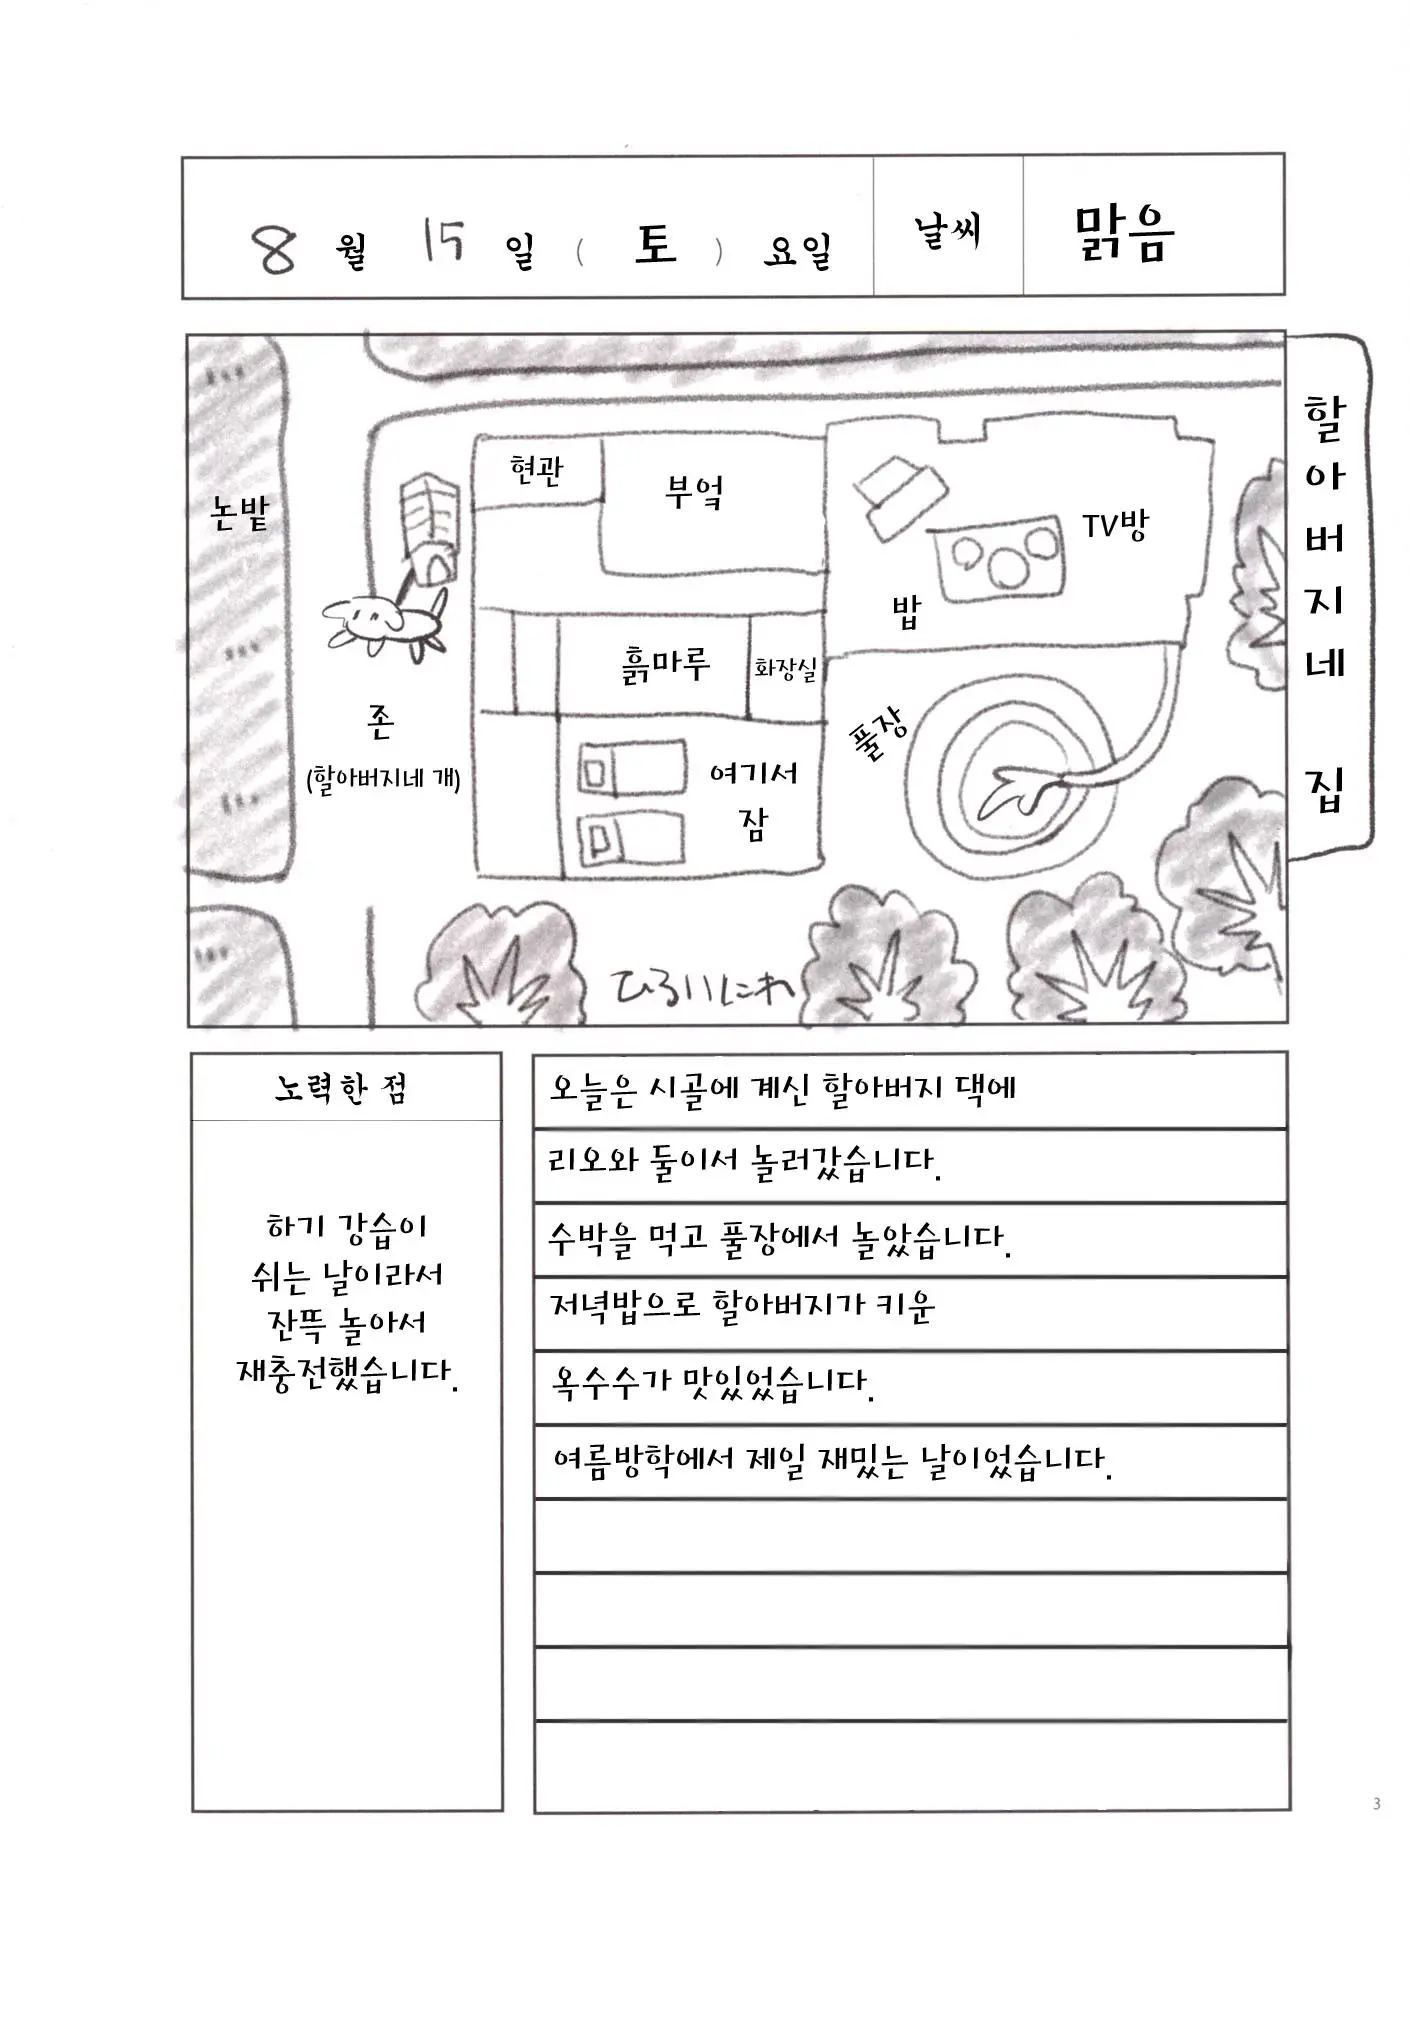 8 월 15 일 ( 토 ) 요일
날씨
맑음
할아버지네 집
논밭
현관
부엌
TV방
밥
흙마루
화장실
존
(할아버지네 개)
풀장
여기서
잠
ひろいにわ
노력한 점
하기 강습이
쉬는 날이라서
잔뜩 놀아서
재충전했습니다.
오늘은 시골에 계신 할아버지 댁에
리오와 둘이서 놀러갔습니다.
수박을 먹고 풀장에서 놀았습니다.
저녁밥으로 할아버지가 키운
옥수수가 맛있었습니다.
여름방학에서 제일 재밌는 날이었습니다.
3